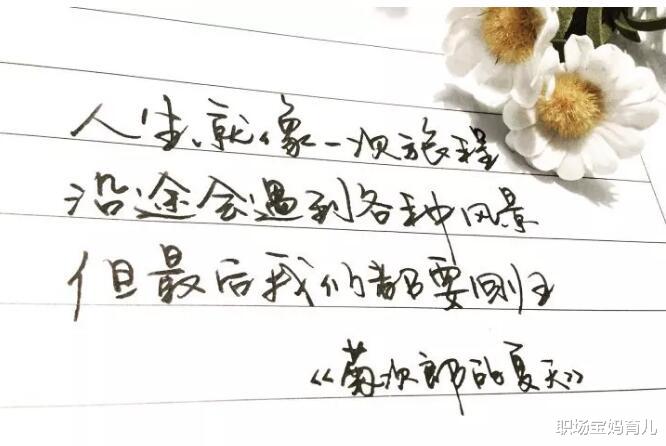 人生就像一次旅程
沿途会遇到各种风景
但最后我们都要回归
《菊次郎的夏天》
职场宝妈育儿